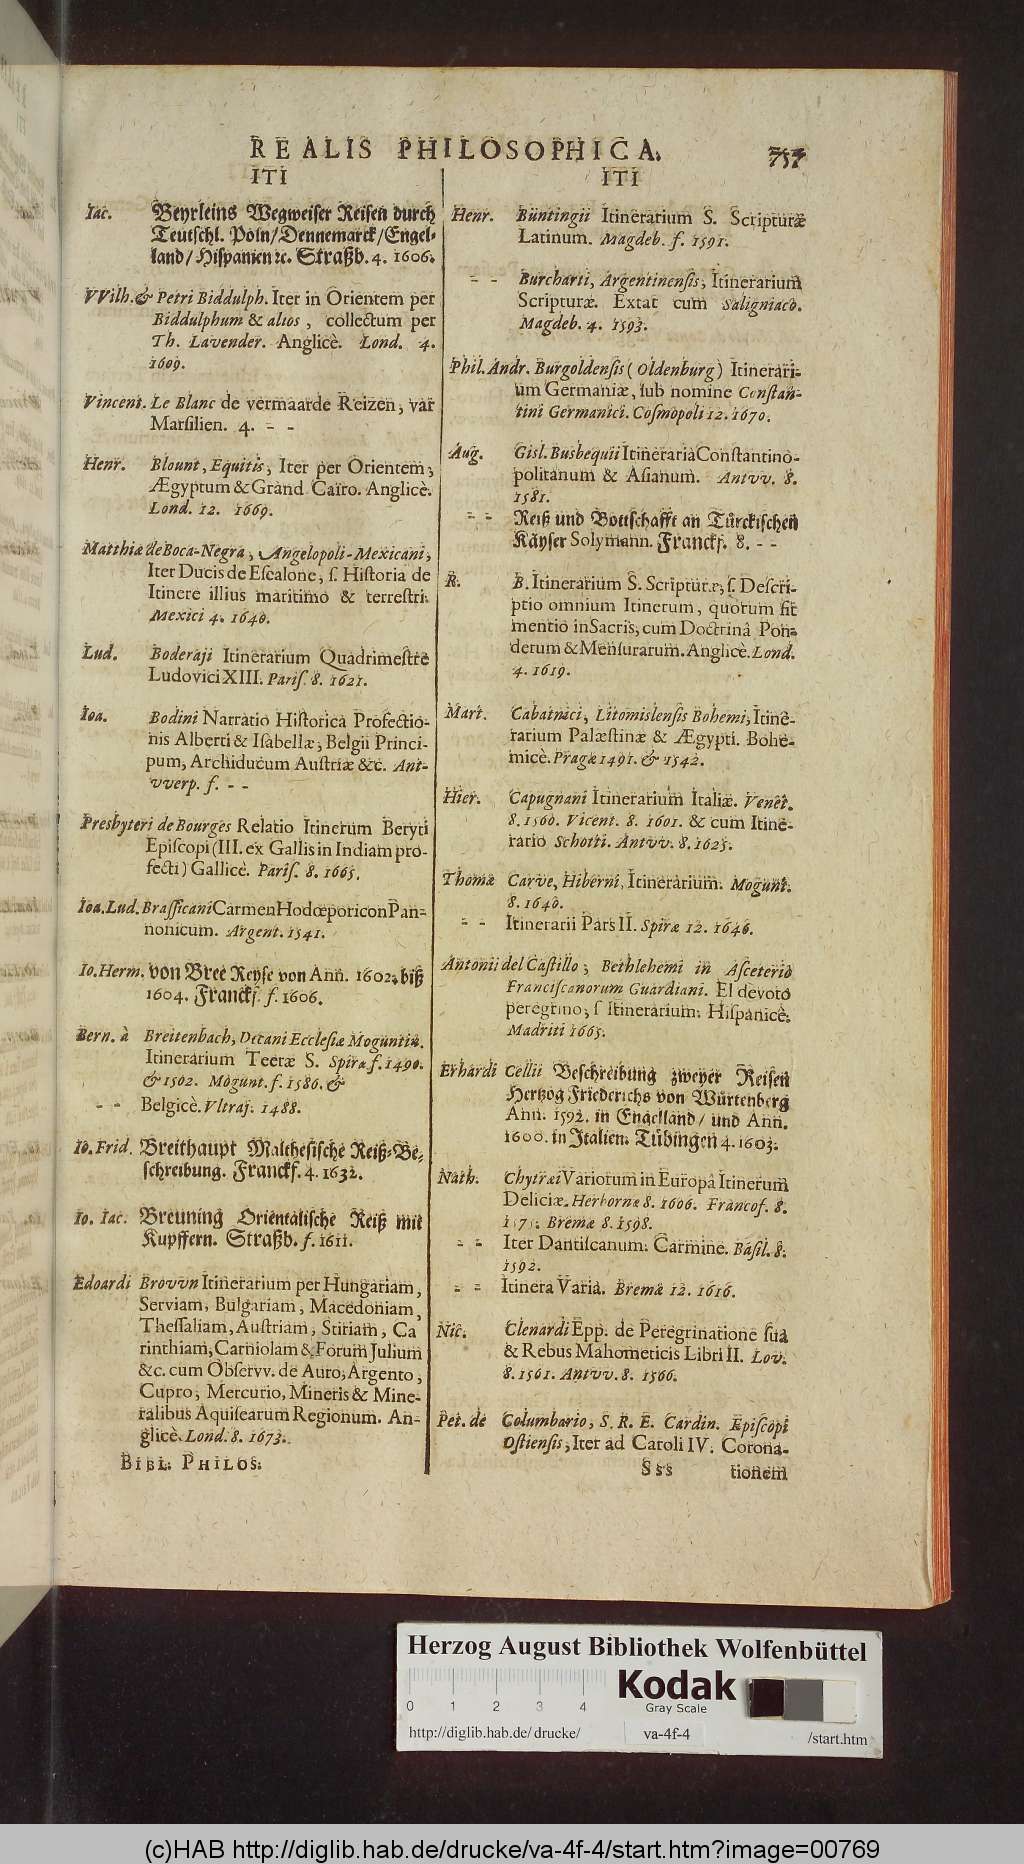 REALIS PHILOSOPHICA.
ITI
Iac. Beyrleins Wegweiser Reisen durch
Teutschl. Poln/Dennemarck/Engel-
land/Hispanien ꝛc. Straßb. 4. 1606.
VVilh. & Petri Biddulph. Iter in Orientem per
Biddulphum & alios, collectum per
Th. Lavender. Anglicè. Lond. 4.
1609.
Vincent. Le Blanc de vermaarde Reizen, var
Marsilien. 4. - -
Henr. Blount, Equitis, Iter per Orientem,
Ægyptum & Grand Cairo. Anglicè.
Lond. 12. 1669.
Matthiæ de Boca-Negra, Angelopoli-Mexicani,
Iter Ducis de Escalone, s. Historia de
Itinere illius maritimo & terrestri.
Mexici 4. 1640.
Lud. Boderaji Itinerarium Quadrimestre
Ludovici XIII. Paris. 8. 1621.
Ioa. Bodini Narratio Historica Profectio-
nis Alberti & Isabellæ, Belgii Princi-
pum, Archiducum Austriæ &c. Ant-
vverp. f. - -
Presbyteri de Bourges Relatio Itinerum Beryti
Episcopi (III. ex Gallis in Indiam pro-
fecti) Gallicè. Paris. 8. 1665.
Ioa. Lud. Brassicani Carmen Hodœporicon Pan-
nonicum. Argent. 1541.
Io. Herm. von Bree Reyse von Ann. 1602. biß
1604. Franckf. f. 1606.
Bern. à Breitenbach, Decani Ecclesiæ Moguntin.
Itinerarium Teeræ S. Spiræ f. 1490.
& 1502. Mogunt. f. 1586. &
- - Belgicè. Vltraj. 1488.
Io. Frid. Breithaupt Malthesische Reiß-Be-
schreibung. Franckf. 4. 1632.
Io. Iac. Breuning Orientalische Reiß mit
Kupffern. Straßb. f. 1611.
Edoardi Brovvn Itinerarium per Hungariam,
Serviam, Bulgariam, Macedoniam,
Thessaliam, Austriam, Stiriam, Ca
rinthiam, Carniolam & Forum Julium
&c. cum Observv. de Auro, Argento,
Cupro, Mercurio, Mineris & Mine-
ralibus Aquisearum Regionum. An-
glicè. Lond. 8. 1673.
BIBL. PHILOS.
ITI
Henr. Büntingii Itinerarium S. Scripturæ
Latinum. Magdeb. f. 1591.
- - Burcharti, Argentinensis, Itinerarium
Scripturæ. Extat cum Saligniaco.
Magdeb. 4. 1593.
Phil. Andr. Burgoldensis (Oldenburg) Itinerari-
um Germaniæ, sub nomine Constan-
tini Germanici. Cosmopoli 12. 1670.
Aug. Gisl. Busbequii Itineraria Constantino-
politanum & Asianum. Antvv. 8.
1581.
- - Reiß und Bottschafft an Türckischen
Käyser Solymann. Franckf. 8. - -
R. B. Itinerarium S. Scripturæ, s. Descri-
ptio omnium Itinerum, quorum fit
mentio in Sacris, cum Doctrinâ Pon-
derum & Mensurarum. Anglicè. Lond.
4. 1619.
Mart. Cabatnici, Litomislensis Bohemi, Itine-
rarium Palæstinæ & Ægypti. Bohe-
micè. Pragæ 1491. & 1542.
Hier. Capugnani Itinerarium Italiæ. Venet.
8. 1560. Vicent. 8. 1601. & cum Itine-
rario Schotti. Antvv. 8. 1625.
Thomæ Carve, Hiberni, Itinerarium. Mogunt.
8. 1640.
- - Itinerarii Pars II. Spiræ 12. 1646.
Antonii del Castillo, Bethlehemi in Asceterio
Franciscanorum Guardiani. El devoto
peregrino, s Itinerarium. Hispanicè.
Madriti 1665.
Erhardi Cellii Beschreibung zweyer Reisen
Hertzog Friederichs von Würtenberg
Ann. 1592. in Engelland/ und Ann.
1600. in Italien. Tübingen 4. 1603.
Nath. Chytræi Variorum in Europâ Itinerum
Deliciæ. Herbornæ 8. 1606. Francof. 8.
Bremæ 8. 1598.
- - Iter Dantiscanum. Carmine. Basil. 8.
1592.
- - Itinera Varia. Bremæ 12. 1616.
Nic. Clenardi Epp. de Peregrinatione sua
& Rebus Mahometicis Libri II. Lov.
8. 1561. Antvv. 8. 1566.
Pet. de Columbario, S. R. E. Cardin. Episcopi
Ostiensis, Iter ad Caroli IV. Corona-
Sss tionem
Herzog August Bibliothek Wolfenbüttel
0 1 2 3 4
Kodak
Gray Scale
http://diglib.hab.de/drucke/ va-4f-4 /start.htm
(c)HAB http://diglib.hab.de/drucke/va-4f-4/start.htm?image=00769